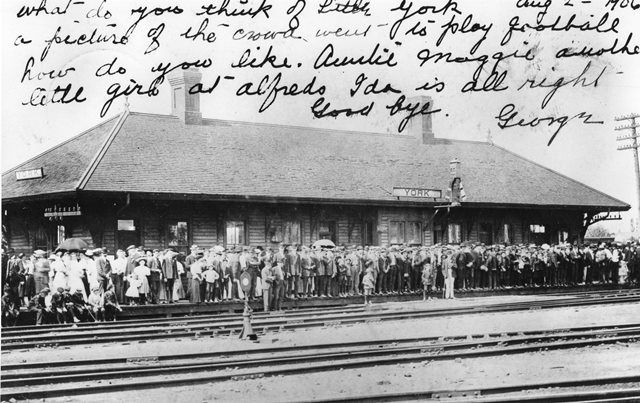 what do you think of Little York Aug 2 - 190
a picture of the crowd went to play football
how do you like. Auntie Maggie anothe
little girl at alfreds Ida is all right
Good bye. George
YORK
YORK